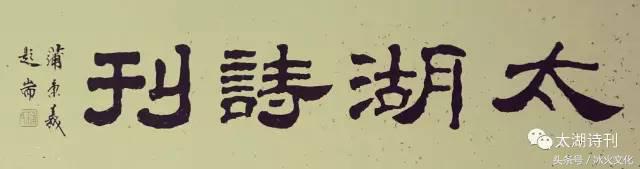 太湖詩刊
蒲秉義
题耑
太湖诗刊
头条号／冰火文化